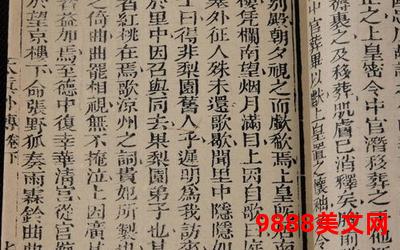 正之上皇密令中官潛移葬之
裹之及移葬肌膚已消釋矣
中官葬畢以獻上皇置之懷袖
別殿朝夕視之而歔欷焉上皇
樓凭欄南望烟月滿目上因自歌
塞外征人殊未還歌歇聞里中隱隱如
曰得非梨園舊人乎遲明爲我訪來
於里中因召與同去果梨園弟子
者紅桃在焉歌涼州之詞貴妃所製
之倚曲曲罷相視無不掩泣上因廣
者益加焉至德中復幸華清宮從官
於望京樓下命張野狐奏雨霖鈴曲曲
太真外傳卷下
9888美文网